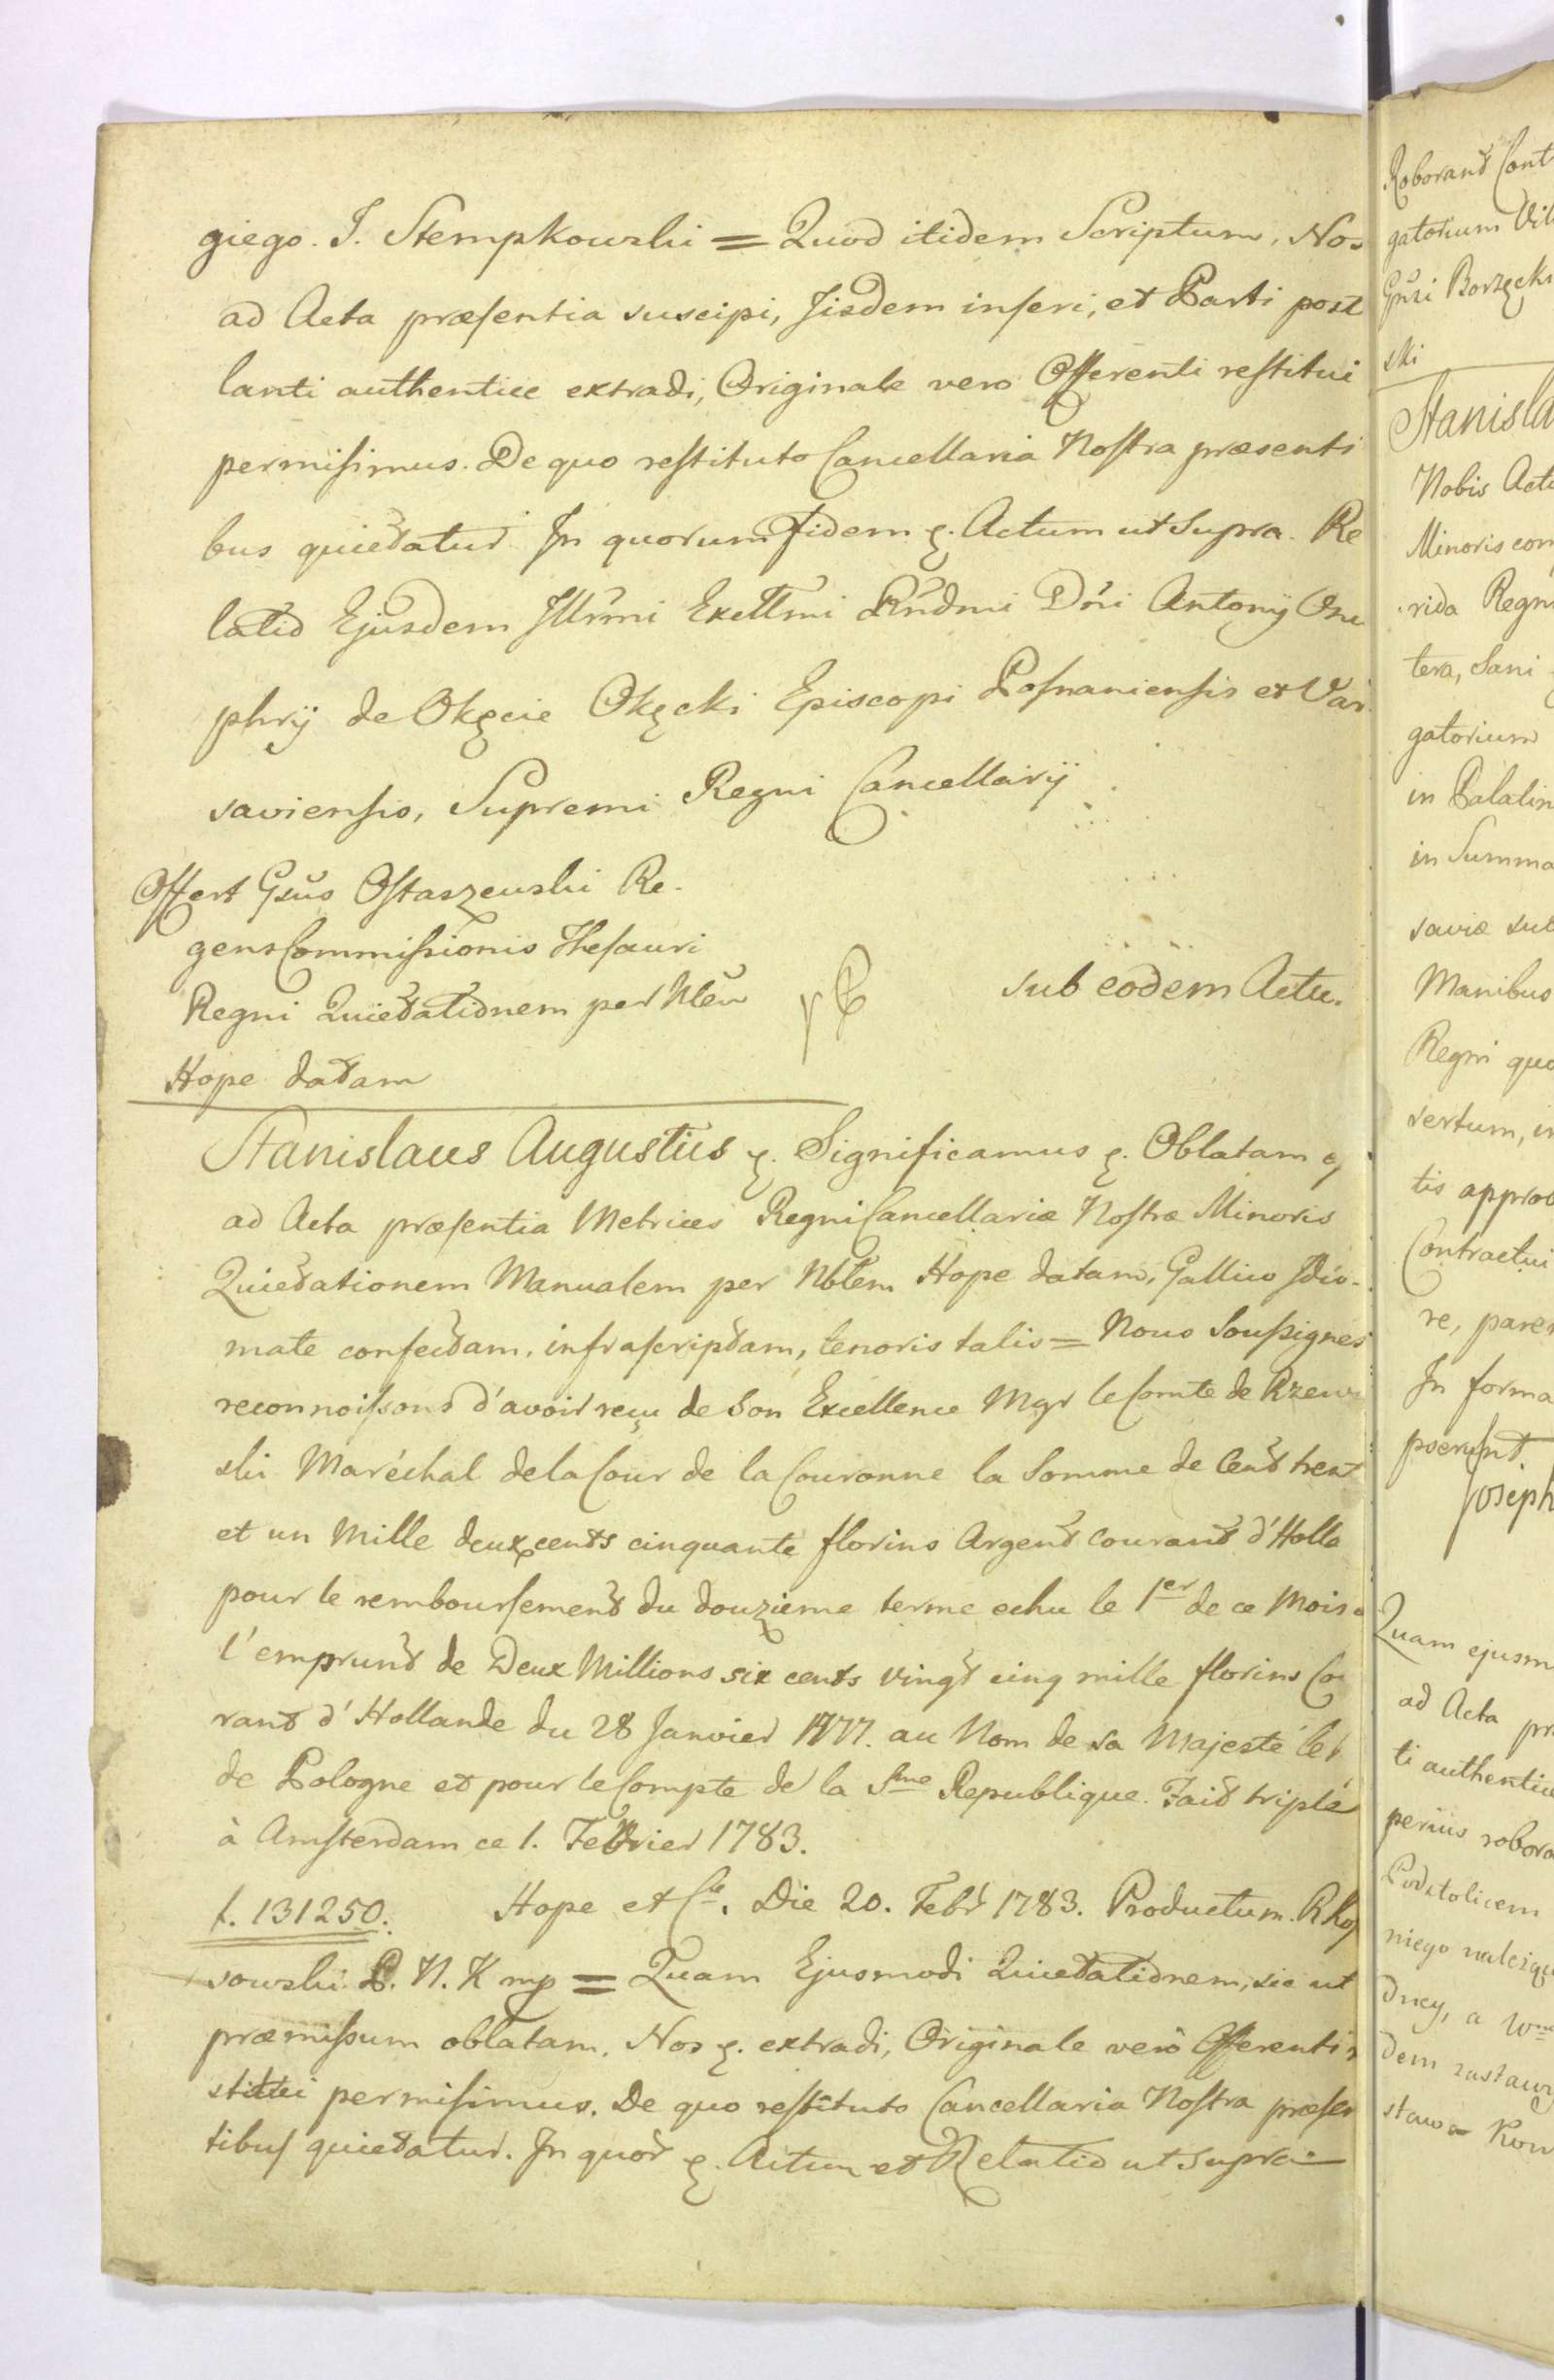 giego. J. Stempkowski = Quod itidem Scriptum, Nos
ad Acta præsentia suscipi, Iisdem inseri, et Parti post
lanti authentice extradi, Originale vero Offerenti restitui
permisimus. De quo restituto Cancellaria Nostra præsenti
bus quietatur. In quorum Fidem &. Actum ut Supra. Re
latio Ejusdem Illrmi Excllmi Rndmi Dni Antonij Onu
phrij de Okęcie Okęcki Episcopi Posnaniensis et Var
saviensis, Supremi Regni Cancellarij
Offert Gsus Ostaszewski Re-
gens Commissionis Thesauri
Regni Quietationem per Nlem
Hope datam
sub eodem Actu.
Stanislaus Augustus &. Significamus &. Oblatam e
ad Acta præsentia Metrices Regni Cancellariæ Nostræ Minoris
Quietationem Manualem per Nblem Hope datam, Gallico Idio-
mate confectam, infrascriptam, tenoris talis = Nous Soussignes
reconnoissons d'avoir reçu de Son Excellence Mgr le Comte de Rzewu
ski Maréchal de la Cour de la Couronne la Somme de Cent trent
et un Mille deux cents cinquante florins Argent Courant d'Holla
pour le remboursement du douzieme terme echu le 1er de ce Mois
l'emprunt de Deux Millions six cents vingt cinq mille florins Cou
rant d'Hollande du 28 Janvier 1777. au Nom de sa Majesté le
de Pologne et pour le Compte de la Sme Republique. Fait triple
à Amsterdam ce 1. Fevrier 1783.
f. 131250. Hope et Cie. Die 20. Febr 1783. Productum. R Kos
sowski P. N. K mp = Quam Ejusmodi Quietationem, sic ut
præmissum oblatam, Nos &. extradi, Originale vero Offerenti
stitui permisimus. De quo restituto Cancellaria Nostra præsen
tibus quietatur. In quor &. Actum et Relatio ut supra
Roborant Cont
gatorium Vil
Gnsi Borzęcki
ski
Stanisla
Nobis Actu
Minoris con
rida Regni
tera, Sani
gatorium
in Palatin
in Summa
saviæ sub
Manibus
Regni quo
sertum, in
tis approb
Contractui
re, paren
In forma
posuerunt.
Joseph
Quam ejusm
ad Acta pr
ti authentice
perius robora
niego należą
dney, a Wm
dem zastawy
stawa Kow